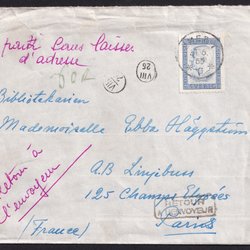 parti sans laisser
d'adresse
VIII
26
SVERIGE
Bibliotekarien
Mademoiselle Ebba Häggström
A.B. Linjebuss
125 Champs Elysées
Paris
(France)
Retour à
l'envoyeur
RETOUR
A L'ENVOYEUR